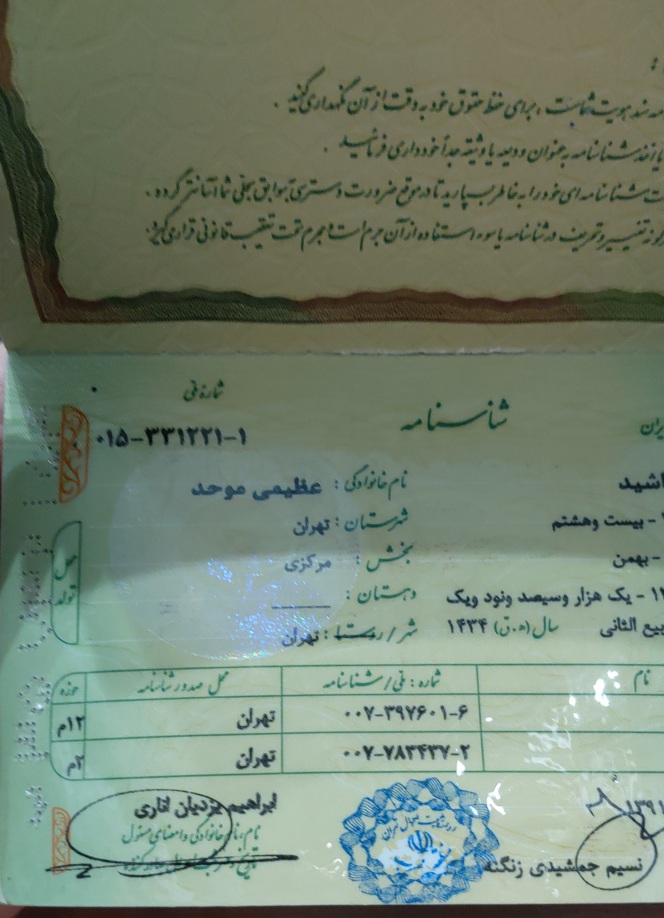 سند هویت شماست ، برای حفظ حقوق خود به دقت از آن نگهداری کنید .
یا اخذ شناسنامه به عنوان ودیعه یا وثیقه جداً خودداری فرمائید .
شناسنامه ای خود را به خاطر بسپارید تا در موقع ضرورت دسترسی به سوابق سجلی شما آسانتر گردد .
گونه تغییر و تحریف در شناسنامه یا سوء استفاده از آن جرم است و مجرم تحت تعقیب قانونی قرار می گیرد.
شماره ملی
۰۱۵-۳۳۱۲۲۱-۱
شناسنامه
نام خانوادگی : عظیمی موحد
شهرستان : تهران
- بیست وهشتم
بخش : مرکزی
- بهمن
دهستان :
- یک هزار وسیصد ونود ویک
شهر / روستا : تهران
الثانی سال (ه.ق) ۱۴۳۴
محل تولد
نام شماره : ملی / شناسنامه محل صدور شناسنامه حوزه
۰۰۷-۳۹۷۶۰۱-۶ تهران ۱۲م
۰۰۷-۷۸۳۴۳۷-۲ تهران ۲م
ابراهیم یزدیان اناری
نام، نام خانوادگی و امضای مسئول
نسیم جمشیدی زنگنه